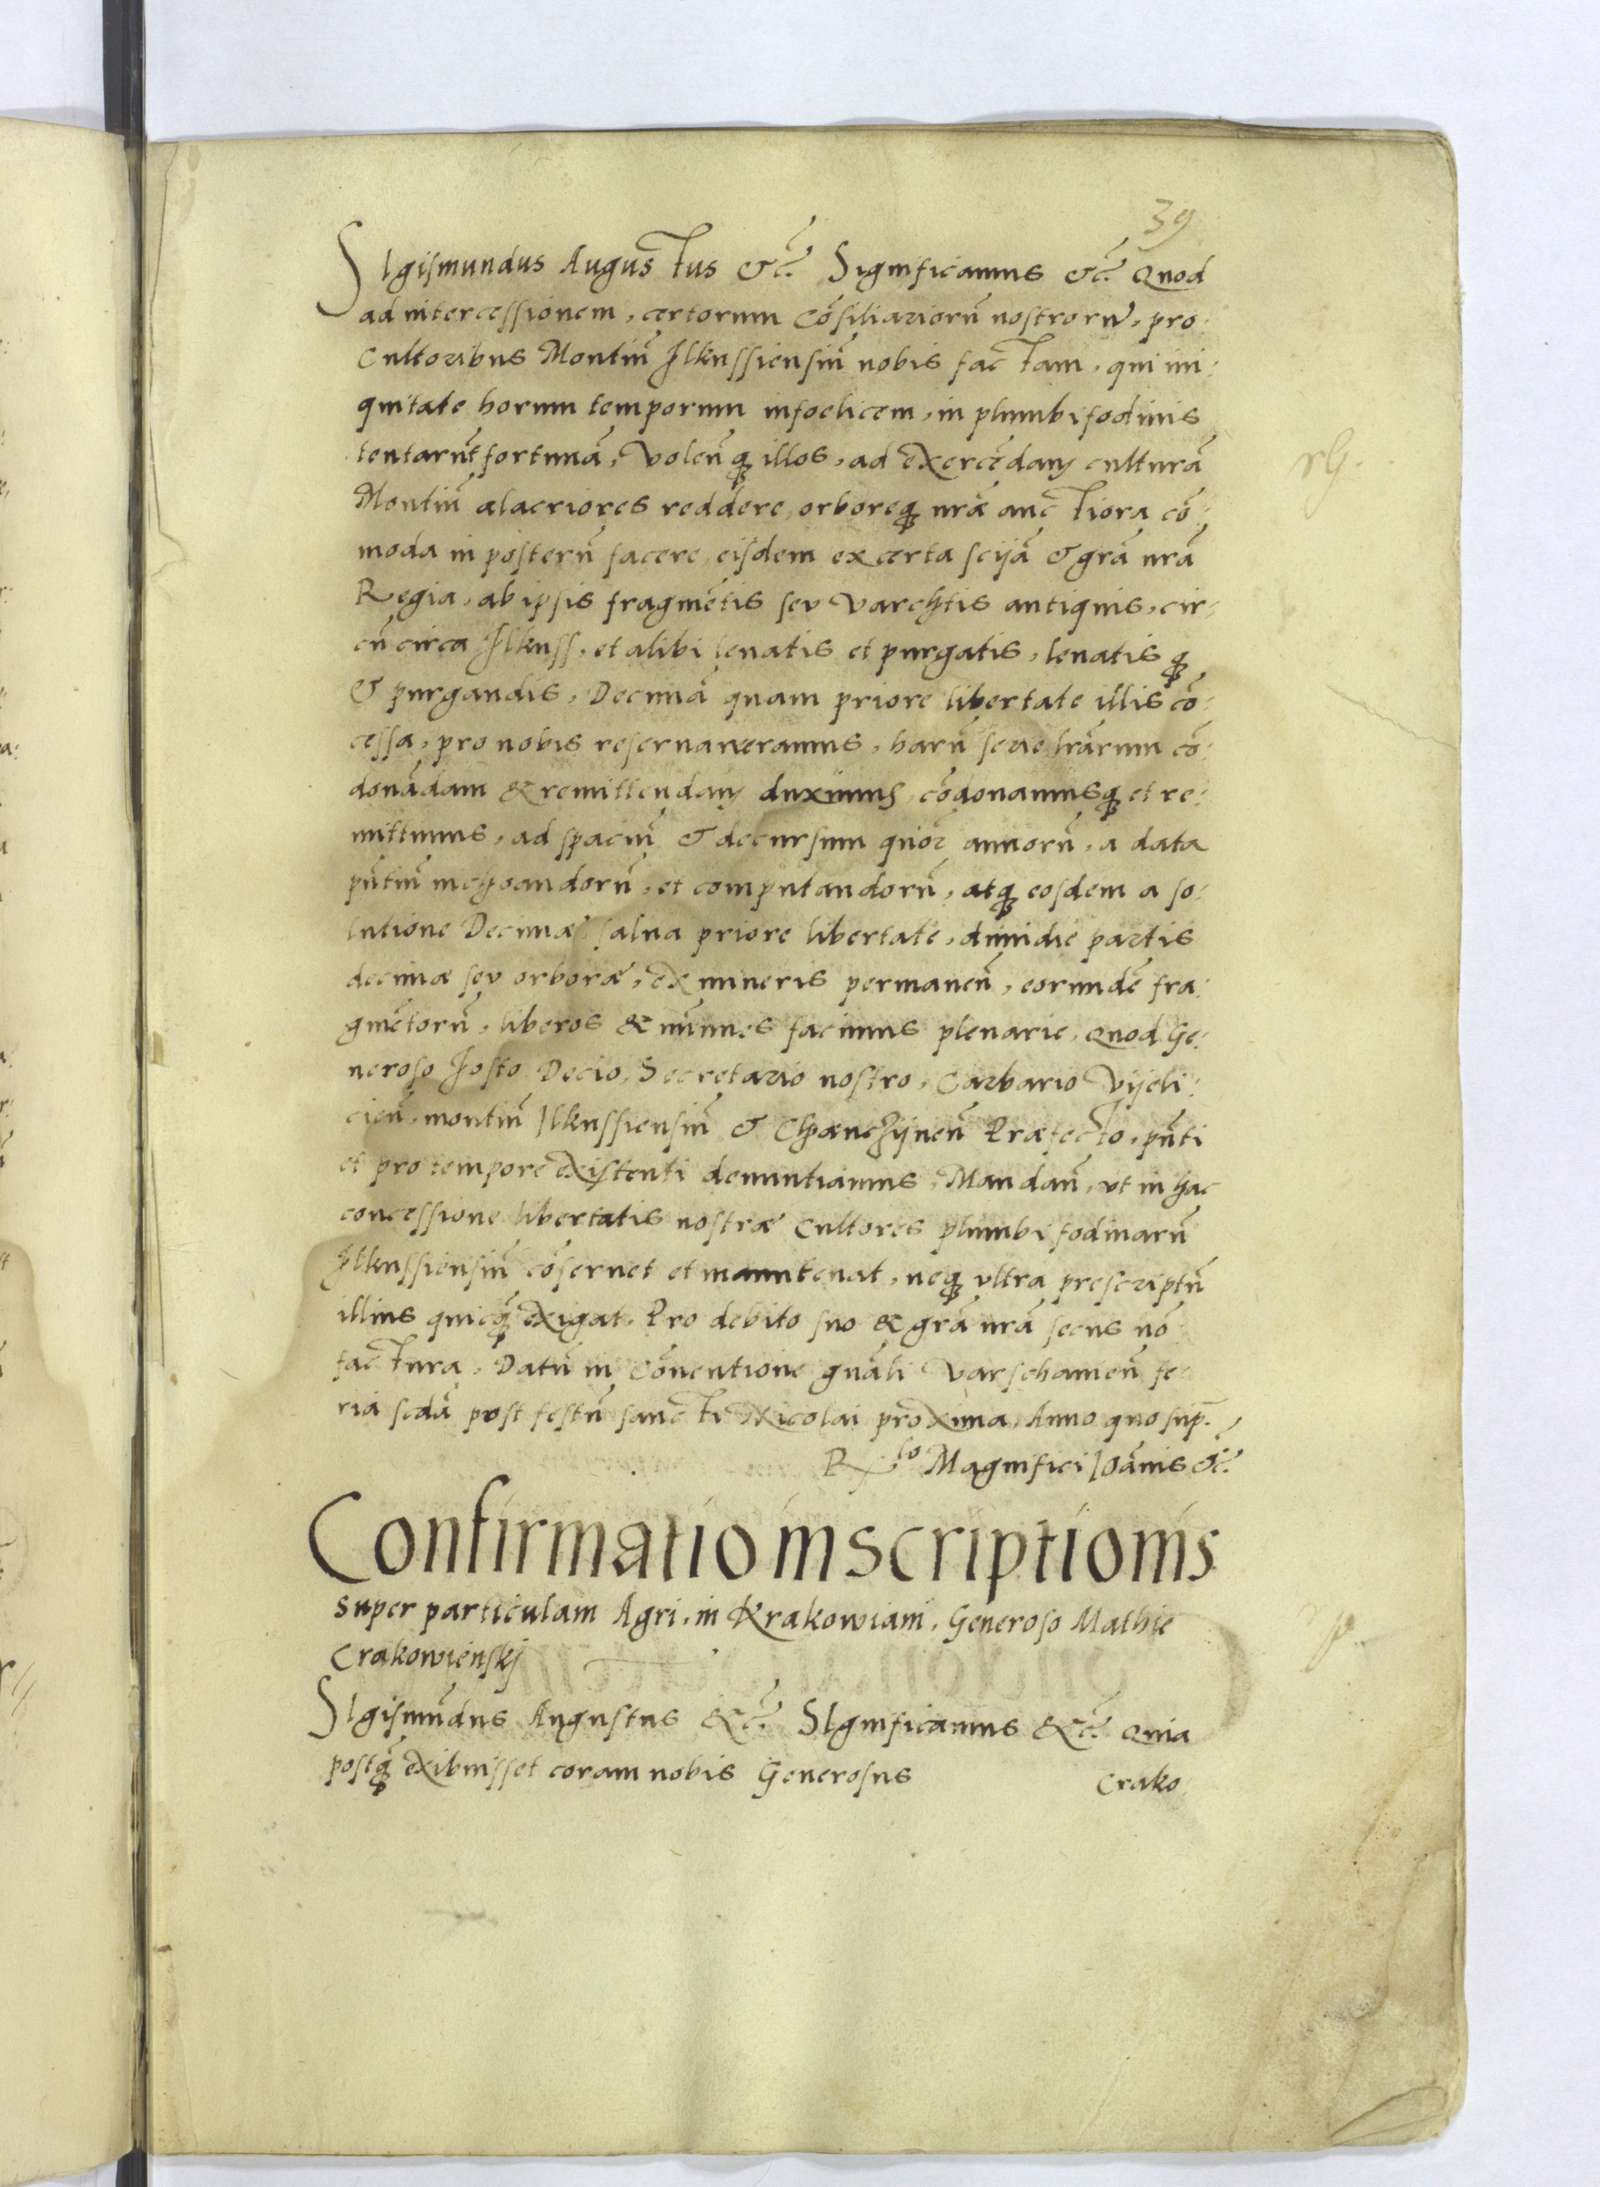 39
SIgismundus Augustus &c̃. Significamus &c̃. Quod
ad intercessionem, certorum Cõsiliariorũ nostrorũ, pro
Cultoribus Montiũ Ilkussiensiũ nobis factam, qui ini:
quitate horum temporum infoelicem, in plumbifodinis
tentarũt fortunã, Volen̄q̃ illos, ad exercẽdam culturã
Montiũ alacriores reddere, orboreq̃ nr̃ae auctiora cõ:
moda in posterũ facere, eisdem ex certa scĩa & gr̃a nr̃a
Regia, ab ipsis fragmẽtis seu Varchtis antiquis, cir:
cũ circa Ilkuss, et alibi leuatis et purgatis, leuatisq̃
& purgandis, Decimã quam priore libertate illis cõ:
cessa, pro nobis reseruaueramus, harũ serie lr̃arum cõ:
donãdam & remittendam duximus, cõdonamusq̃ et re:
mittimus, ad spaciũ & decursum quor̃ annorũ, a data
pñtiũ inchoandorũ, et computandorũ, atq̃ eosdem a so:
lutione Decimae salua priore libertate, dimidie partis
decimae seu orborae, ex mineris permaneñ, eorundẽ fra:
gmẽtorũ, liberos & ĩmunes facimus plenarie, Quod Ge:
neroso Josto Decio, Secretario nostro, Carbario Vijeli:
cieñ, montiũ Ilkussiensiũ & Chẽnchijneñ Praefecto, pñti
et pro tempore existenti denuntiamus, Mandañ, ut in hac
concessione libertatis nostrae Cultores plumbifodinarũ
Ilkussiensiũ cõseruet et manuteneat, neq̃ ultra prescriptũ
illius quicq̃ exigat, Pro debito suo & gr̃a nr̃a secus nõ
factura, Datũ in Cõuentione gñali Varschauieñ fe
ria scdã post festũ sancti Nicolai proxima, Anno quo sup̃.
Rlo Magnifici Joãnis &c̃.
Confirmatio inscriptionis
super particulam Agri, in Krakowiani, Generoso Mathie
Crakowienskj
SIgismũdus Augustus &c̃. SIgnificamus &c̃. Quia
postq̃ exibuisset coram nobis Generosus Crako